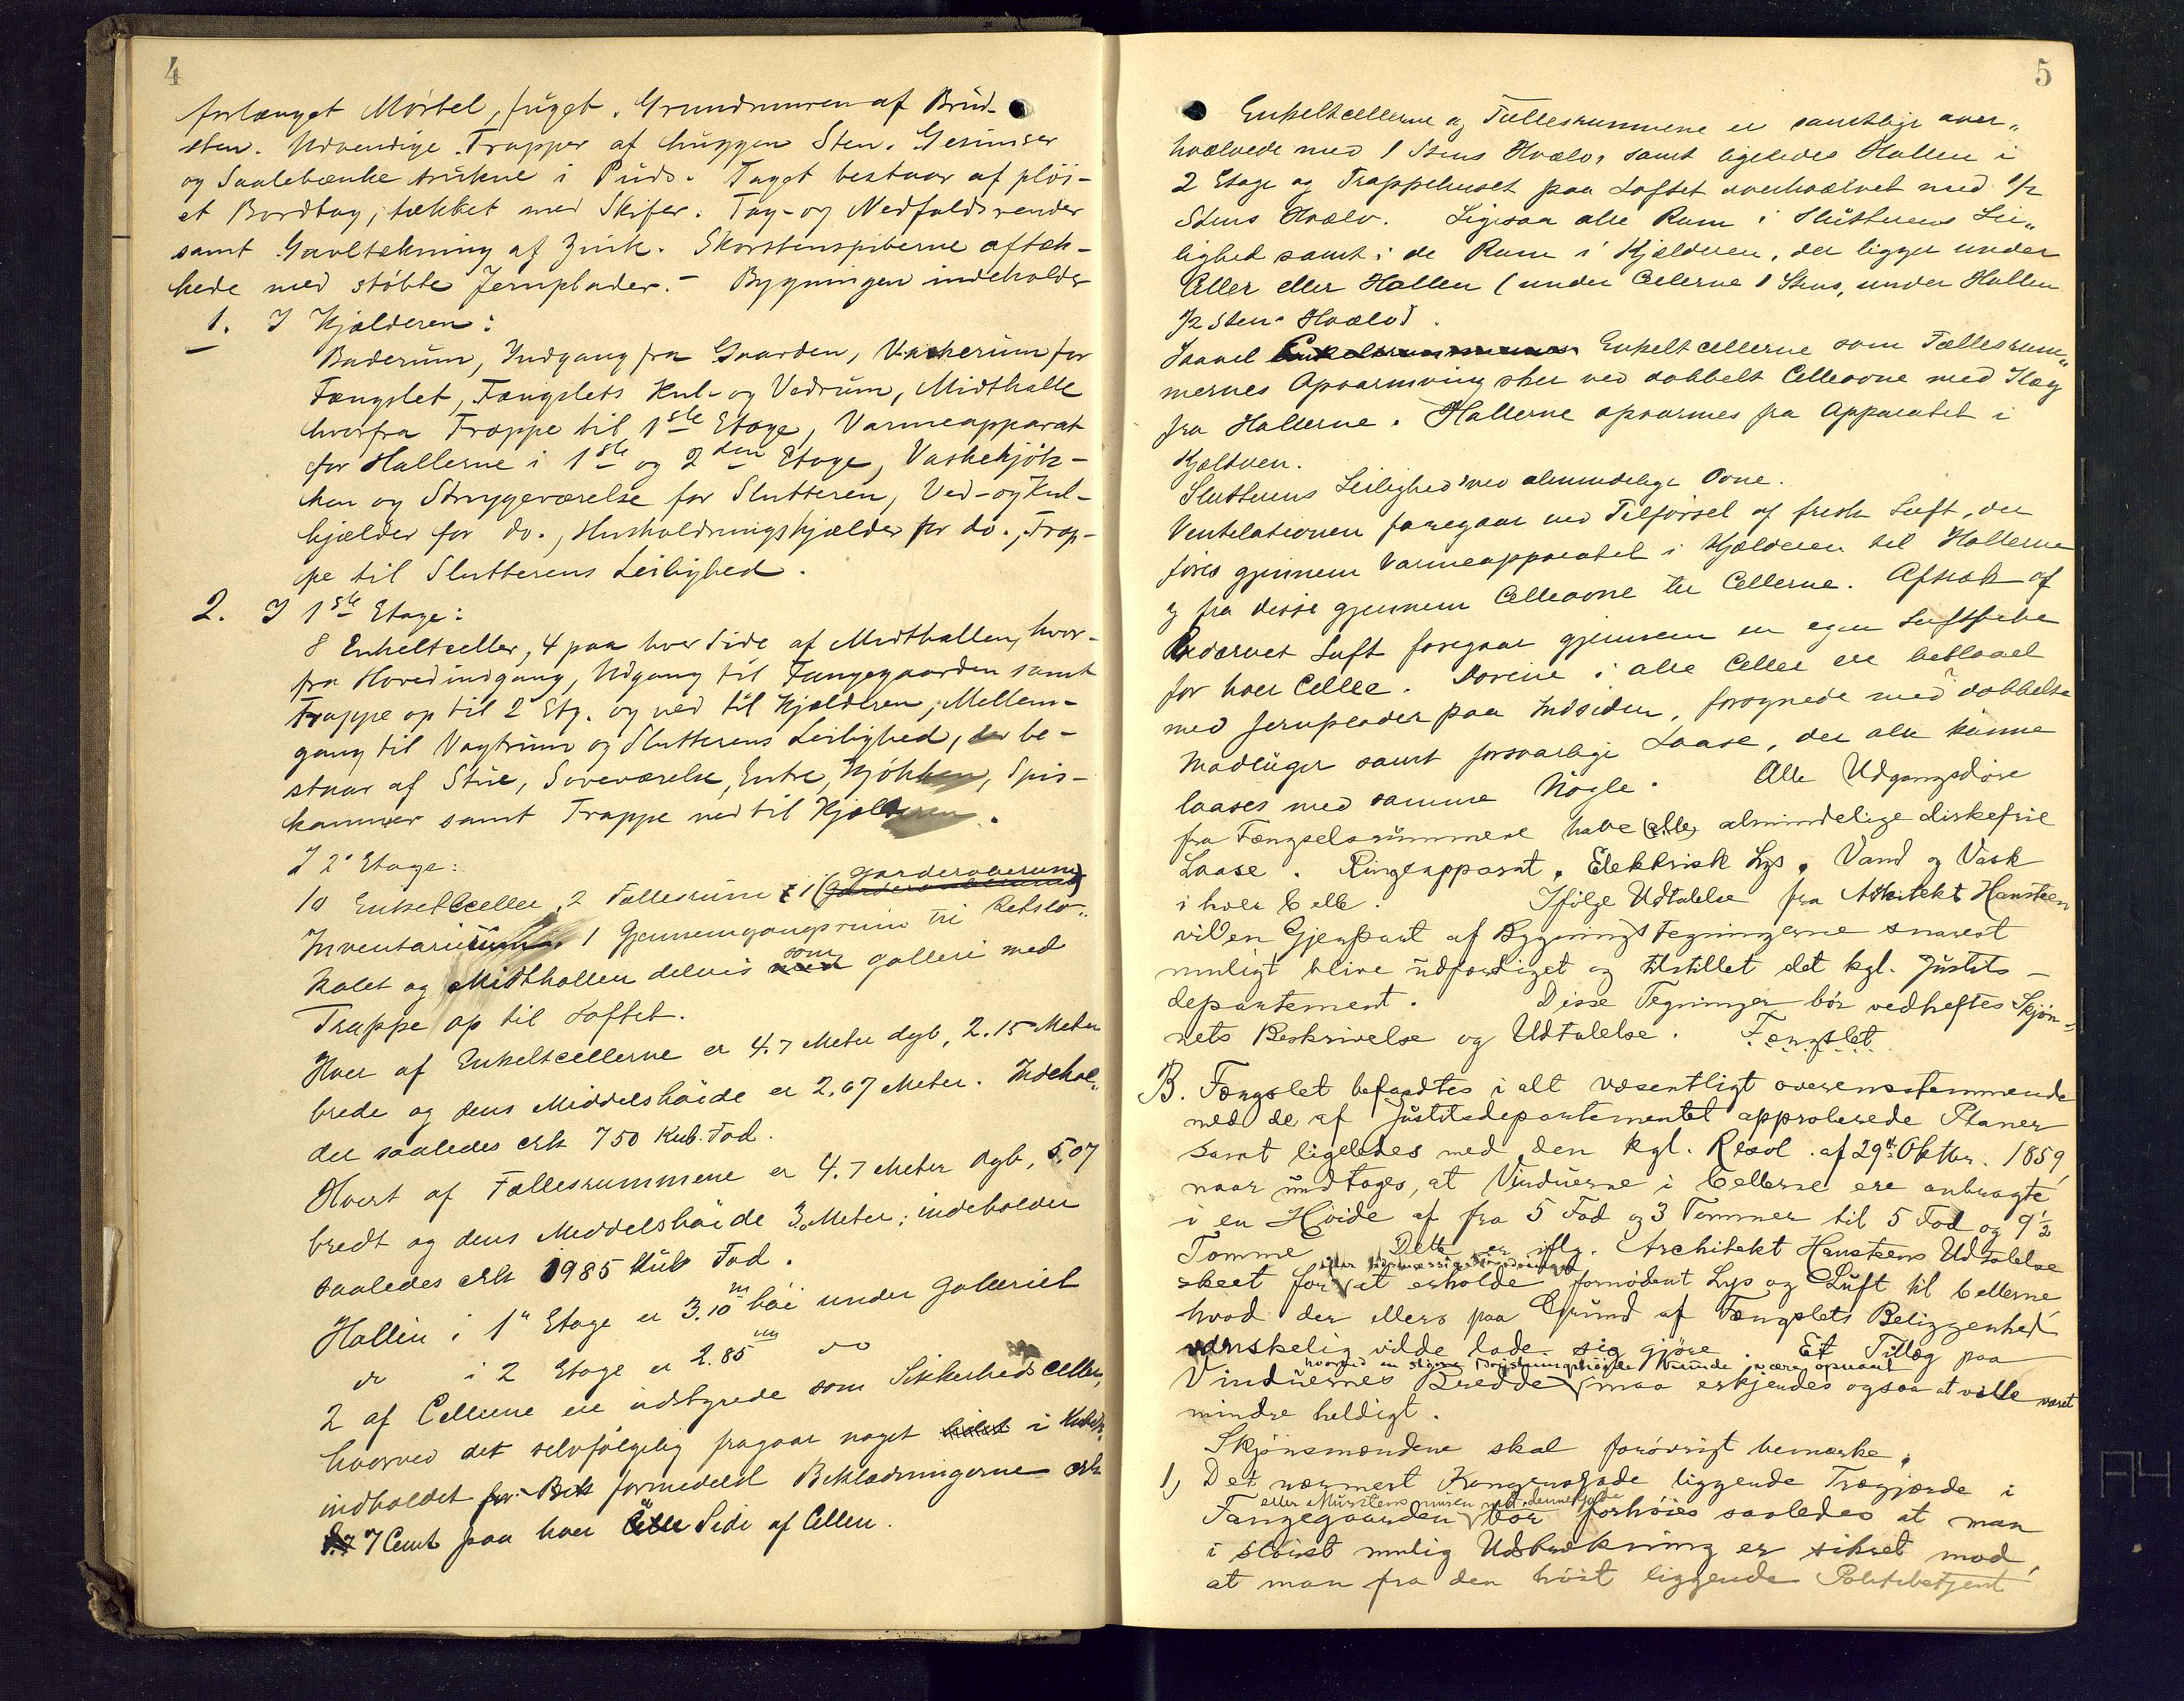 4
forlænget Mörtel, füget. Grundmuren af Brud-
sten. Udvendige Trapper af huggen Sten. Gesimser
og Saalebænke trukne i Puds. Taget bestaar af plöi-
et Bordtag, tækket med Skifer. Tag- og Nedfaldsrender
samt Gavltækning af Zink. Skorstenspiberne aftæk-
kede med støbte Jernplader. - Bygningen indeholder
1. I Kjælderen:
Baderum, Indgang fra Gaarden, Vaskerum for
Fængslet, Fængslets Kul- og Vedrum, Midthalle
hvorfra Trappe til 1ste Etage, Varmeapparat
for Hallerne i 1ste og 2den Etage, Vaskekjök-
ken og Strygeværelse for Slutteren, Ved- og Kul-
kjælder for do., Husholdningskjælder for do., Trap-
pe til Slutterens Leilighed.
2. I 1ste Etage:
8 Enkeltceller, 4 paa hver Side af Midthallen, hvor-
fra Hovedindgang, Udgang til Fangegaarden samt
Trappe op til 2 Etg. og ned til Kjælderen, Mellem-
gang til Vagtrum og Slutterens Leilighed, der be-
staar af Stue, Soveværelse, Entre, Kjökken, Spis-
kammer samt Trappe ned til Kjælderen.
I 2' Etage:
garderoberum
10 Enkeltceller, 2 Fællesrum & 1 (garderoberum)
Inventarium, 1 Gjennemgangsrum til Retslo-
kalet og Midthallen delvis som galleri med
Trappe op til Loftet.
Hver af Enkeltcellerne er 4.7 Meter dyb, 2.15 Meter
brede og dens Middelshöide er 2,07 Meter. Indehol-
der saaledes ca 750 Kub. Fod.
Hvert af Fællesrummene er 4.7 Meter dyb, 5,07
bredt og dens Middelshöide 3, Meter; indeholder
saaledes ca 1985 Kub Fod.
Hallen i 1" Etage er 3.10 m höi under galleriet
do i 2 Etage er 2.85 m do
2 af Cellerne ere udstyrede som Sikkerhedsceller,
hvorved det selvfölgelig fragaar noget i Kubik-
indholdet formedelst Beklædningerne ca
7 Cent paa hver Side af Cellen.
5
Enkeltcellerne og Fællesrummene er samtlige over-
hvælvede med 1 Stens Hvælv, samt ligeledes Hallen i
2 Etage og Trappehuset paa Loftet overhvælvet med 1/2
Stens Hvælv. Ligesaa alle Rum i Slutterens Lei-
lighed samt i de Rum i Kjælderen, der ligger under
Celler eller Hallen (under Cellerne 1 Stens, under Hallen
1/2 Sten Hvælv).
Saavel Enkeltcellerne som Fællesrum-
mernes Opvarmning sker ved dobbelt Celleovne med Ilæg
fra Hallerne. Hallerne opvarmes fra Apparatet i
Kjælderen.
Slutterens Leilighed ved almindelige Ovne.
Ventilationen foregaar ved Tilførsel af frisk Luft, der
føres gjennem Varmeapparatet i Kjælderen til Hallerne
og fra disse gjennem Celleovne til Cellerne. Aftræk af
bedærvet Luft foregaar gjennem en egen Luftpibe
for hver Celle. Dørene i alle Celler ere beslaaet
med Jernplader paa Indsiden, forsynede med dobbelte
Madluger samt forsvarlige Laase, der alle kunne
laases med samme Nögle. Alle Udgangsdöre
fra Fængselsrummene have (alle) almindelige dirkefrie
Laase. Ringeapparat, Elektrisk Lys, Vand og Vask
i hver Celle. Ifölge Udtalelse fra Arkitekt Hansteen
vil en Gjenpart af Bygningstegningerne snarest
muligt blive udfærdiget og tilstillet det kgl. Justits-
departement. Disse Tegninger bör vedheftes Skjön-
nets Beskrivelse og Udtalelse. Fængslet
B. Fængslet befandtes i alt væsentligt overensstemmende
med de af Justitsdepartementet approberede Planer
samt ligeledes med den kgl. Resol. af 29d. Oktbr. 1859,
naar undtages, at Vinduerne i Cellerne ere anbragte
i en Höide af fra 5 Fod og 3 Tommer til 5 Fod og 9 1/2
Tomme. Dette er iflg. Architekt Hansteens Udtalelse
skeet for at erholde fornödent Lys og Luft til Cellerne,
hvad der ellers paa Grund af Fængslets Beliggenhed
vanskelig vilde lade sig gjöre. Et Tillæg paa
hvorved en större kunde være opnaaet
Vinduernes Bredde maa erkjendes ogsaa at ville været
mindre heldigt.
Skjönsmændene skal forövrigt bemærke,
1, Det nærmest Kongensgade liggende Trægjærde i
eller Murstensmuren ved denne Gade
Fangegaarden bör forhöies saaledes at man
i störst mulig Udstrækning er sikret mod,
at man fra den höit liggende Politibetjent